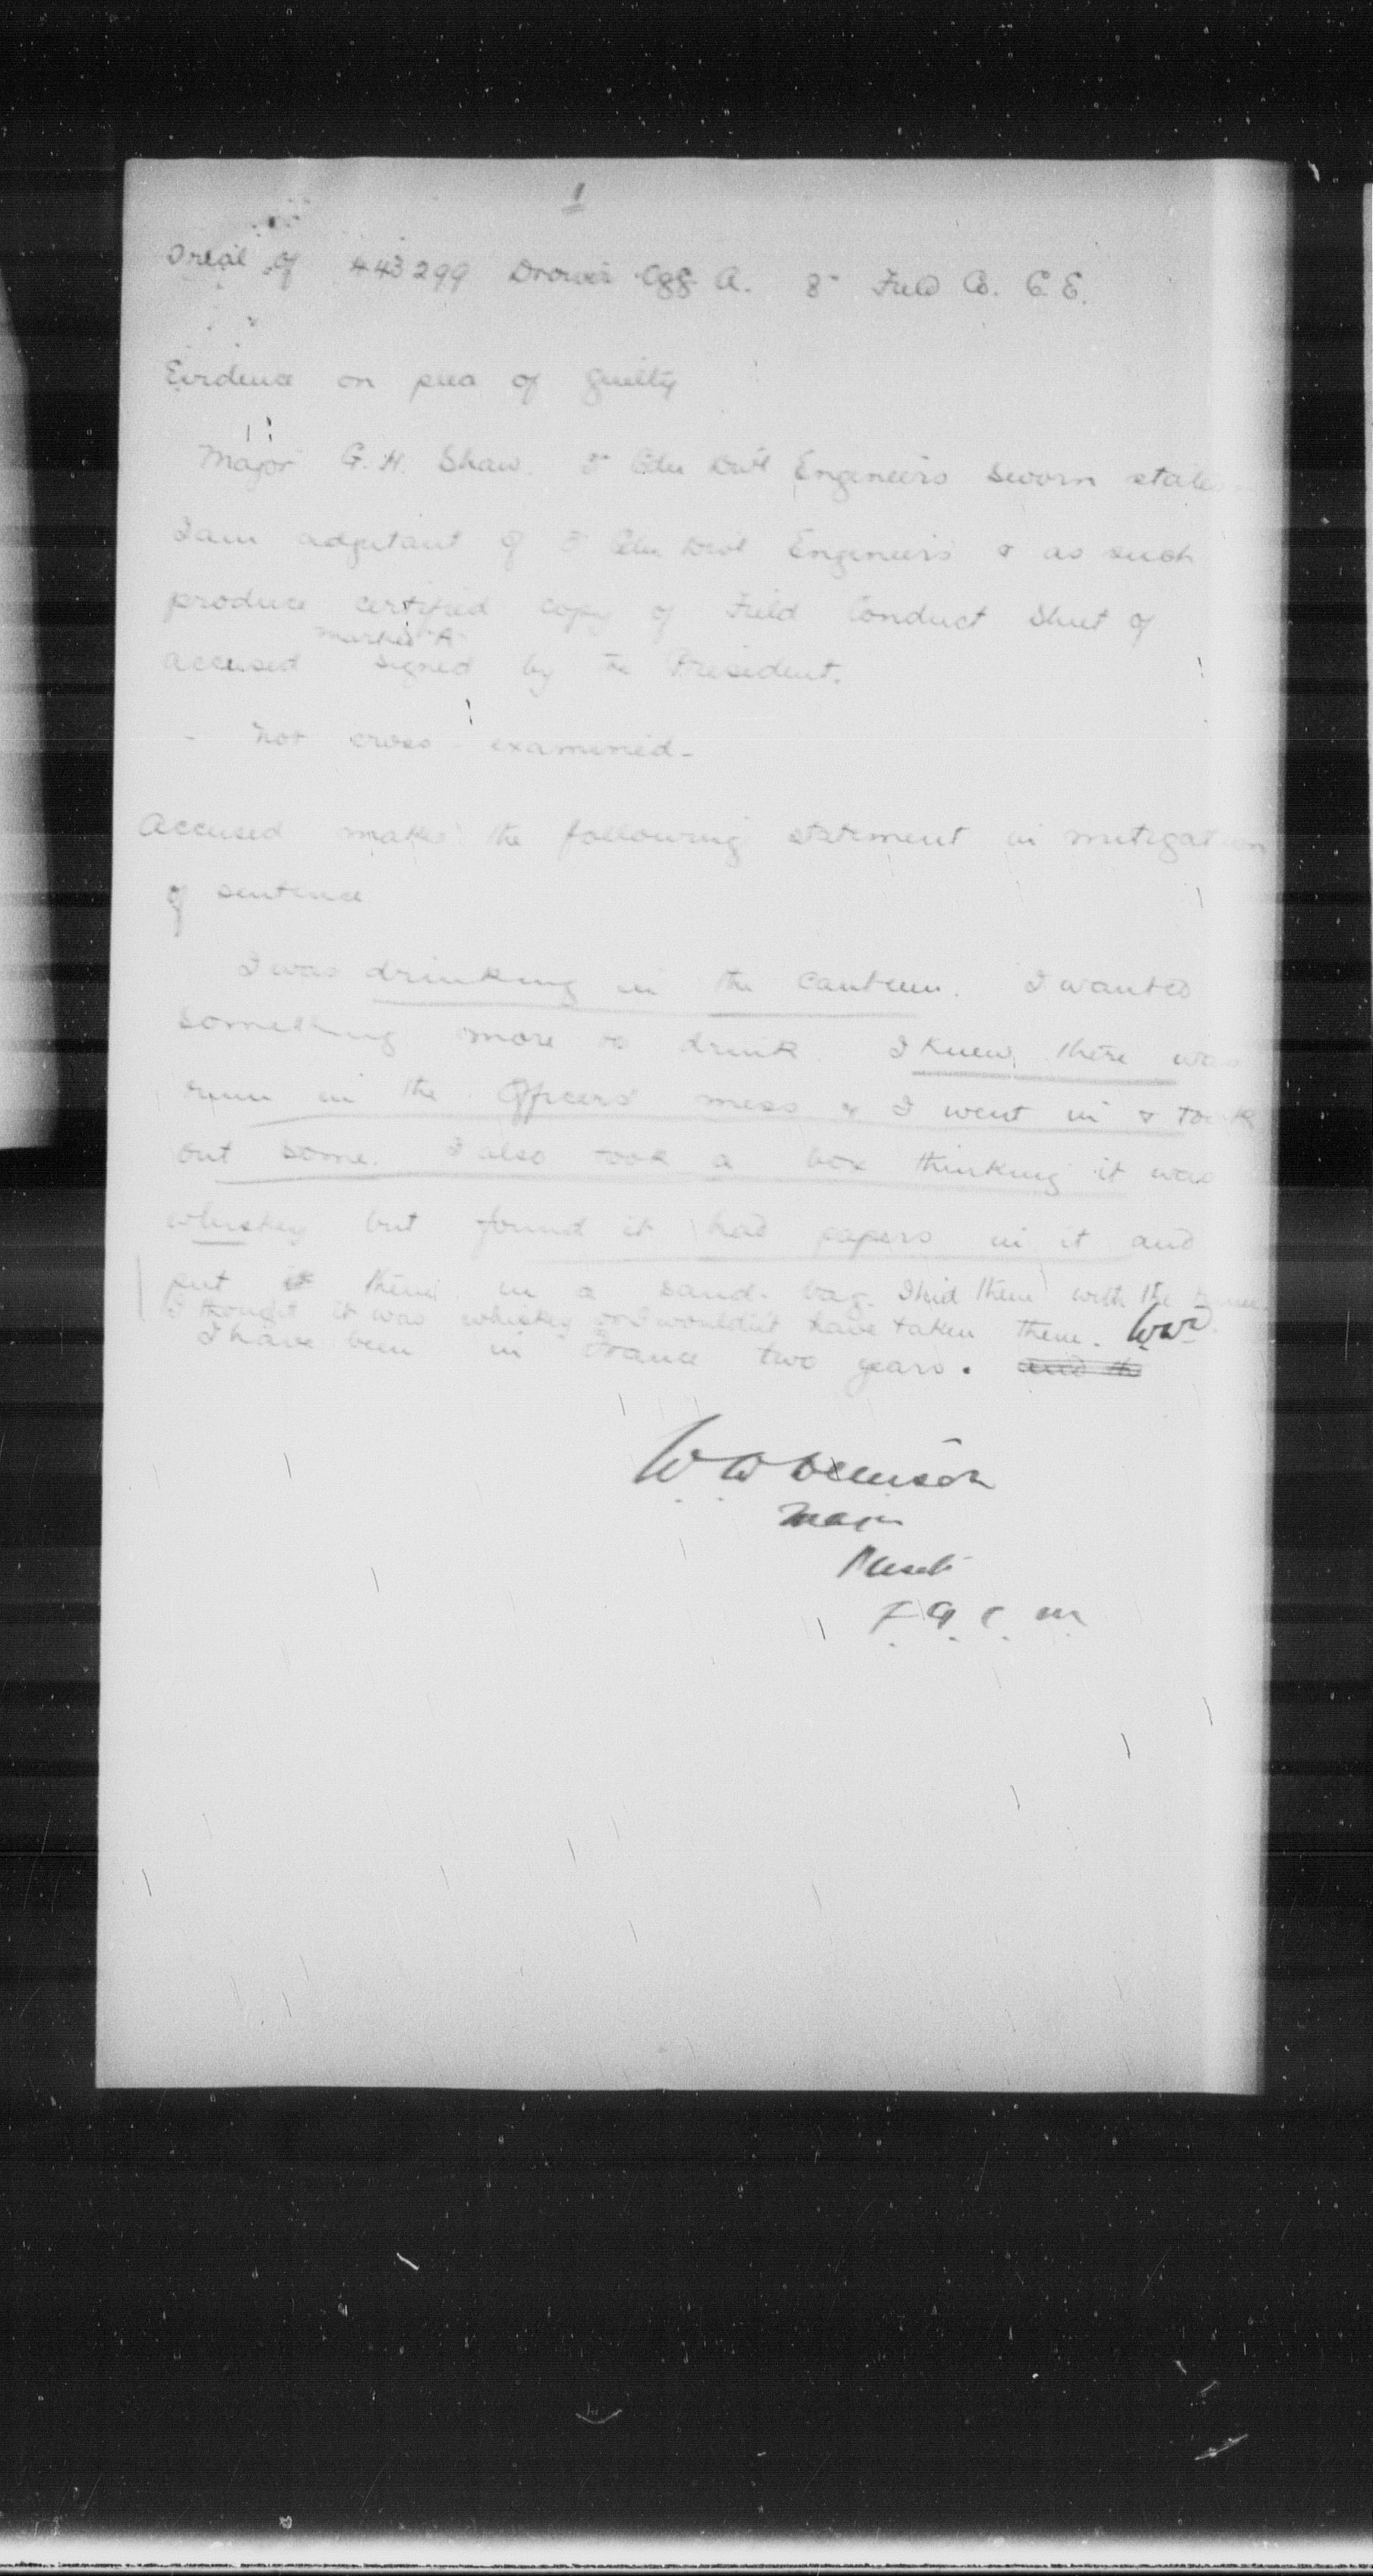 1
Trial of 443299 Driver Ogg A. 8th Field Co. C.E.
Evidence on plea of guilty
Major G.H. Shaw. Cdn Divl Engineers sworn states
I am adjutant of Cdn Divl Engineers & as such
produce certified copy of Field Conduct Sheet of
marked "A"
accused signed by the President.
- Not cross-examined -
Accused makes the following statement in mitigation
of sentence
I was drinking in the canteen. I wanted
something more to drink I knew there was
rum in the Officers' mess & I went in & took
out some. I also took a box thinking it was
whiskey but found it had papers in it and
put it them in a sand-bag. I hid them with the
I thought it was whiskey or I wouldn't have taken them. WWD
I have been in France two years. and the
W W Denison
Major
Presdt
F. G. C. M.